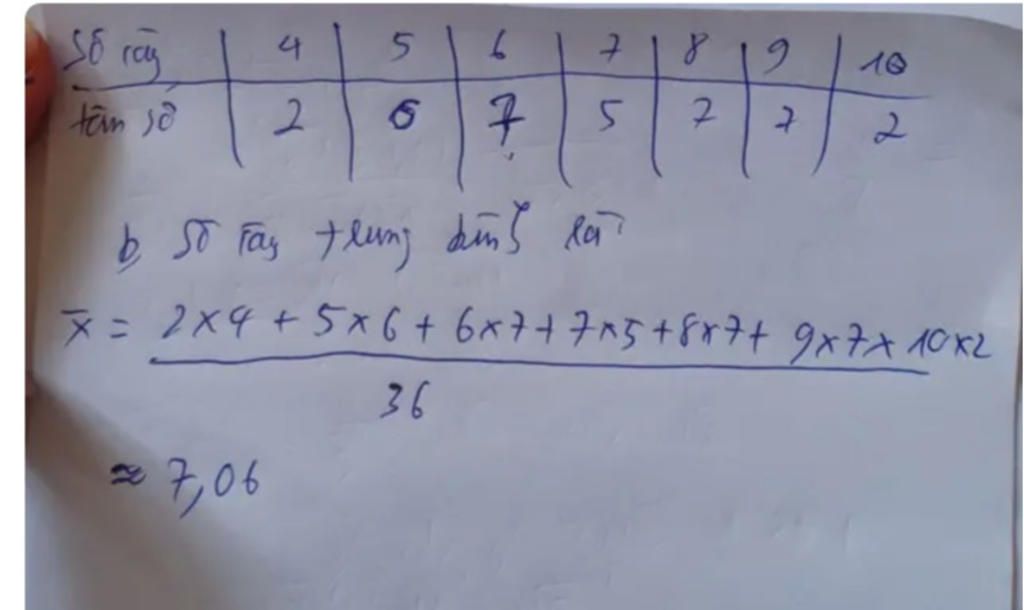 Số cây | 4 | 5 | 6 | 7 | 8 | 9 | 10
tần số | 2 | 6 | 7 | 5 | 7 | 7 | 2
b, Số cây trung bình là
x̄ = 2x4 + 5x6 + 6x7 + 7x5 + 8x7 + 9x7 x 10x2
36
≈ 7,06